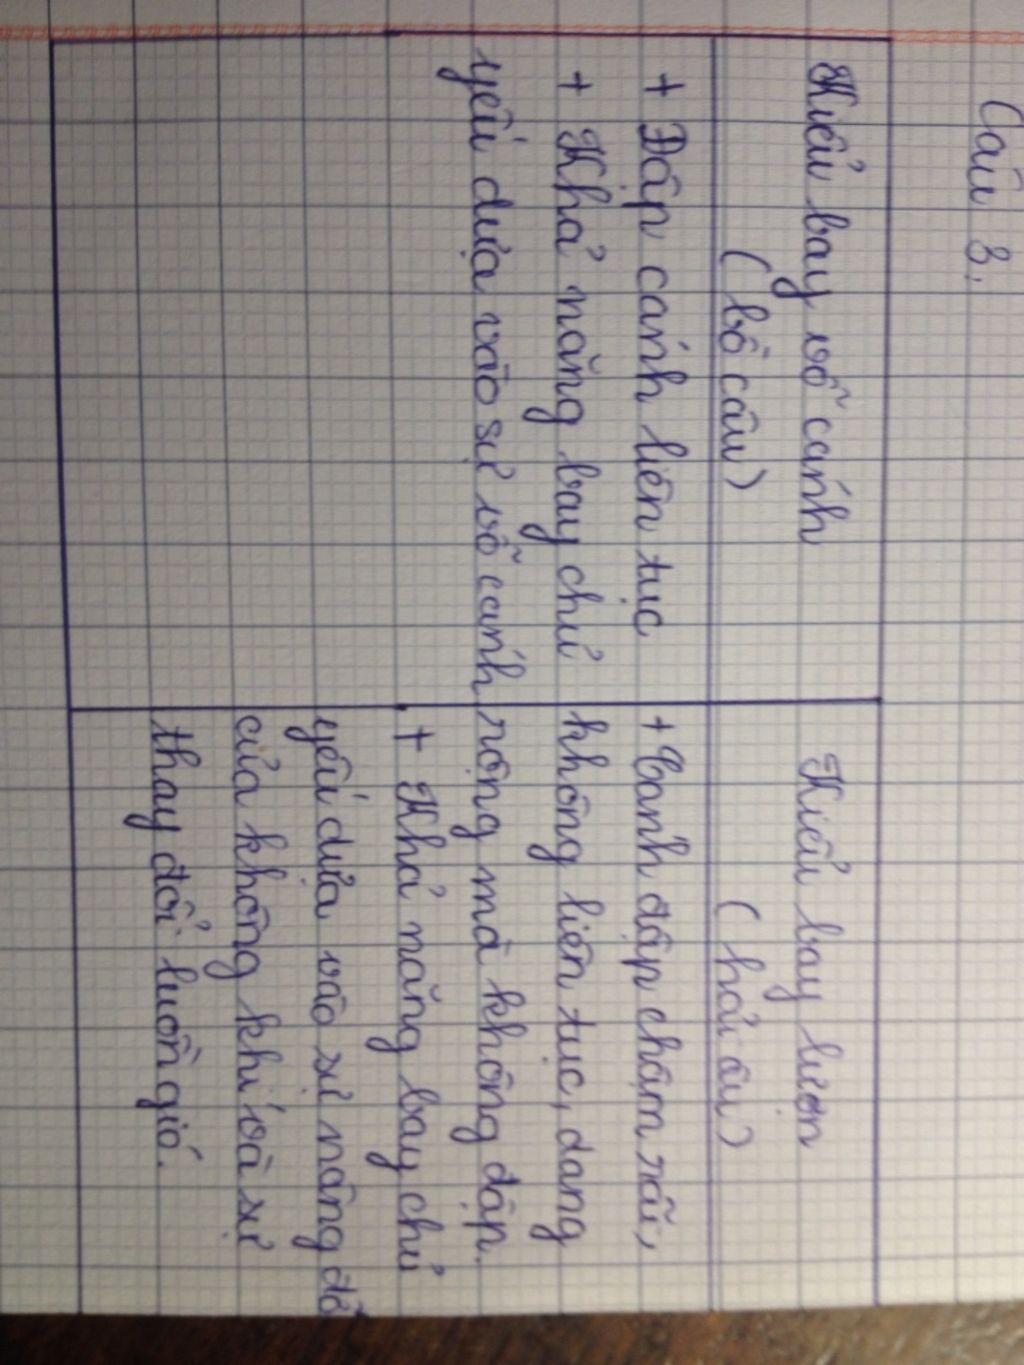 Câu 3:
Kiểu bay vỗ cánh
(bồ câu)
+ Đập cánh liên tục
+ Khả năng bay chủ
yếu dựa vào sự vỗ cánh
Kiểu bay lượn
(hải âu)
+ Cánh đập chậm rãi,
không liên tục, dang
rộng mà không đập.
+ Khả năng bay chủ
yếu dựa vào sự nâng đỡ
của không khí và sự
thay đổi luồng gió.